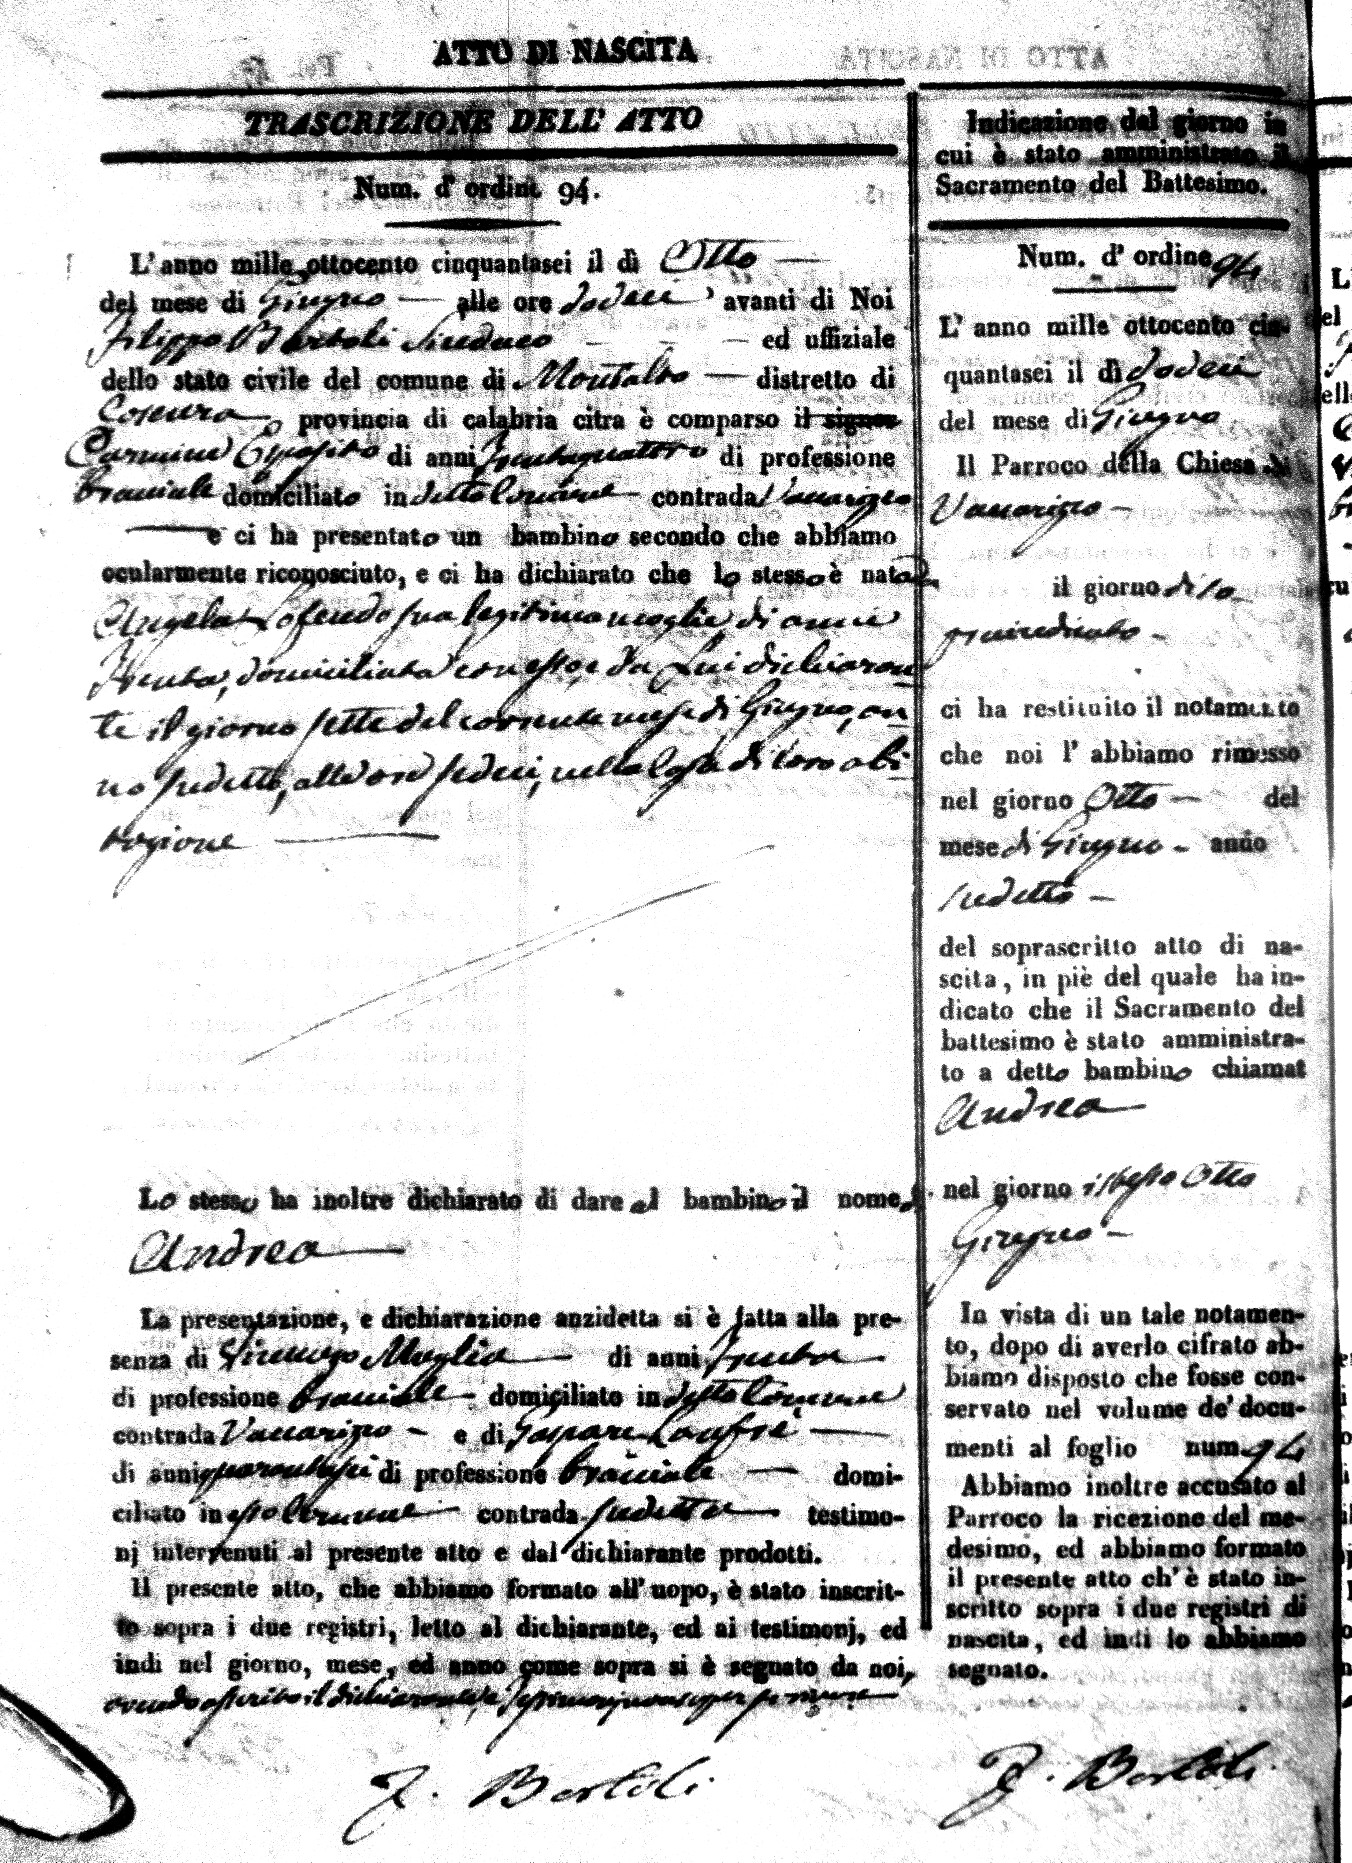 ATTO DI NASCITA
TRASCRIZIONE DELL' ATTO
Num. d' ordine 94.
L' anno mille ottocento cinquantasei il dì Otto
del mese di Giugno alle ore dodeci avanti di Noi
Filippo Bartoli Sindaco ed uffiziale
dello stato civile del comune di Montalto distretto di
Cosenza provincia di calabria citra è comparso il signor
Carmine Esposito di anni trentaquattro di professione
braciale domiciliato in detto Comune contrada Vaccarizzo
e ci ha presentato un bambino secondo che abbiamo
ocularmente riconosciuto, e ci ha dichiarato che lo stesso è nato da
Angela sua legittima moglie di anni
trenta, domiciliata con esso, e da Lui dichiaran
te il giorno sette del corrente mese di Giugno, an
no sudetto, alle ore sedeci, nella casa di loro abi
tazione
Lo stesso ha inoltre dichiarato di dare al bambino il nome di
Andrea
La presentazione, e dichiarazione anzidetta si è fatta alla pre-
senza di Vincenzo Moglia di anni trenta
di professione braciale domiciliato in detto Comune
contrada Vaccarizzo e di Gaspare
di anni quarantasei di professione braciale domi-
ciliato in esso Comune contrada sudetta testimo-
nj intervenuti al presente atto e dal dichiarante prodotti.
Il presente atto, che abbiamo formato all' uopo, è stato inscrit-
to sopra i due registri, letto al dichiarante, ed ai testimonj, ed
indi nel giorno, mese, ed anno come sopra si è segnato da noi,
avendo asserito il dichiarante e testimonj non saper scrivere
F. Bartoli
Indicazione del giorno in
cui è stato amministrato il
Sacramento del Battesimo.
Num. d' ordine 94
L' anno mille ottocento cin-
quantasei il dì dodeci
del mese di Giugno
Il Parroco della Chiesa di
Vaccarizzo
il giorno di so
praindicato
ci ha restituito il notamento
che noi l' abbiamo rimesso
nel giorno Otto del
mese di Giugno anno
sudetto
del soprascritto atto di na-
scita, in piè del quale ha in-
dicato che il Sacramento del
battesimo è stato amministra-
to a detto bambino chiamat
Andrea
nel giorno istesso Otto
Giugno
In vista di un tale notamen-
to, dopo di averlo cifrato ab-
biamo disposto che fosse con-
servato nel volume de' docu-
menti al foglio num. 94
Abbiamo inoltre accusato al
Parroco la ricezione del me-
desimo, ed abbiamo formato
il presente atto ch' è stato in-
scritto sopra i due registri di
nascita, ed indi lo abbiamo
segnato.
F. Bartoli